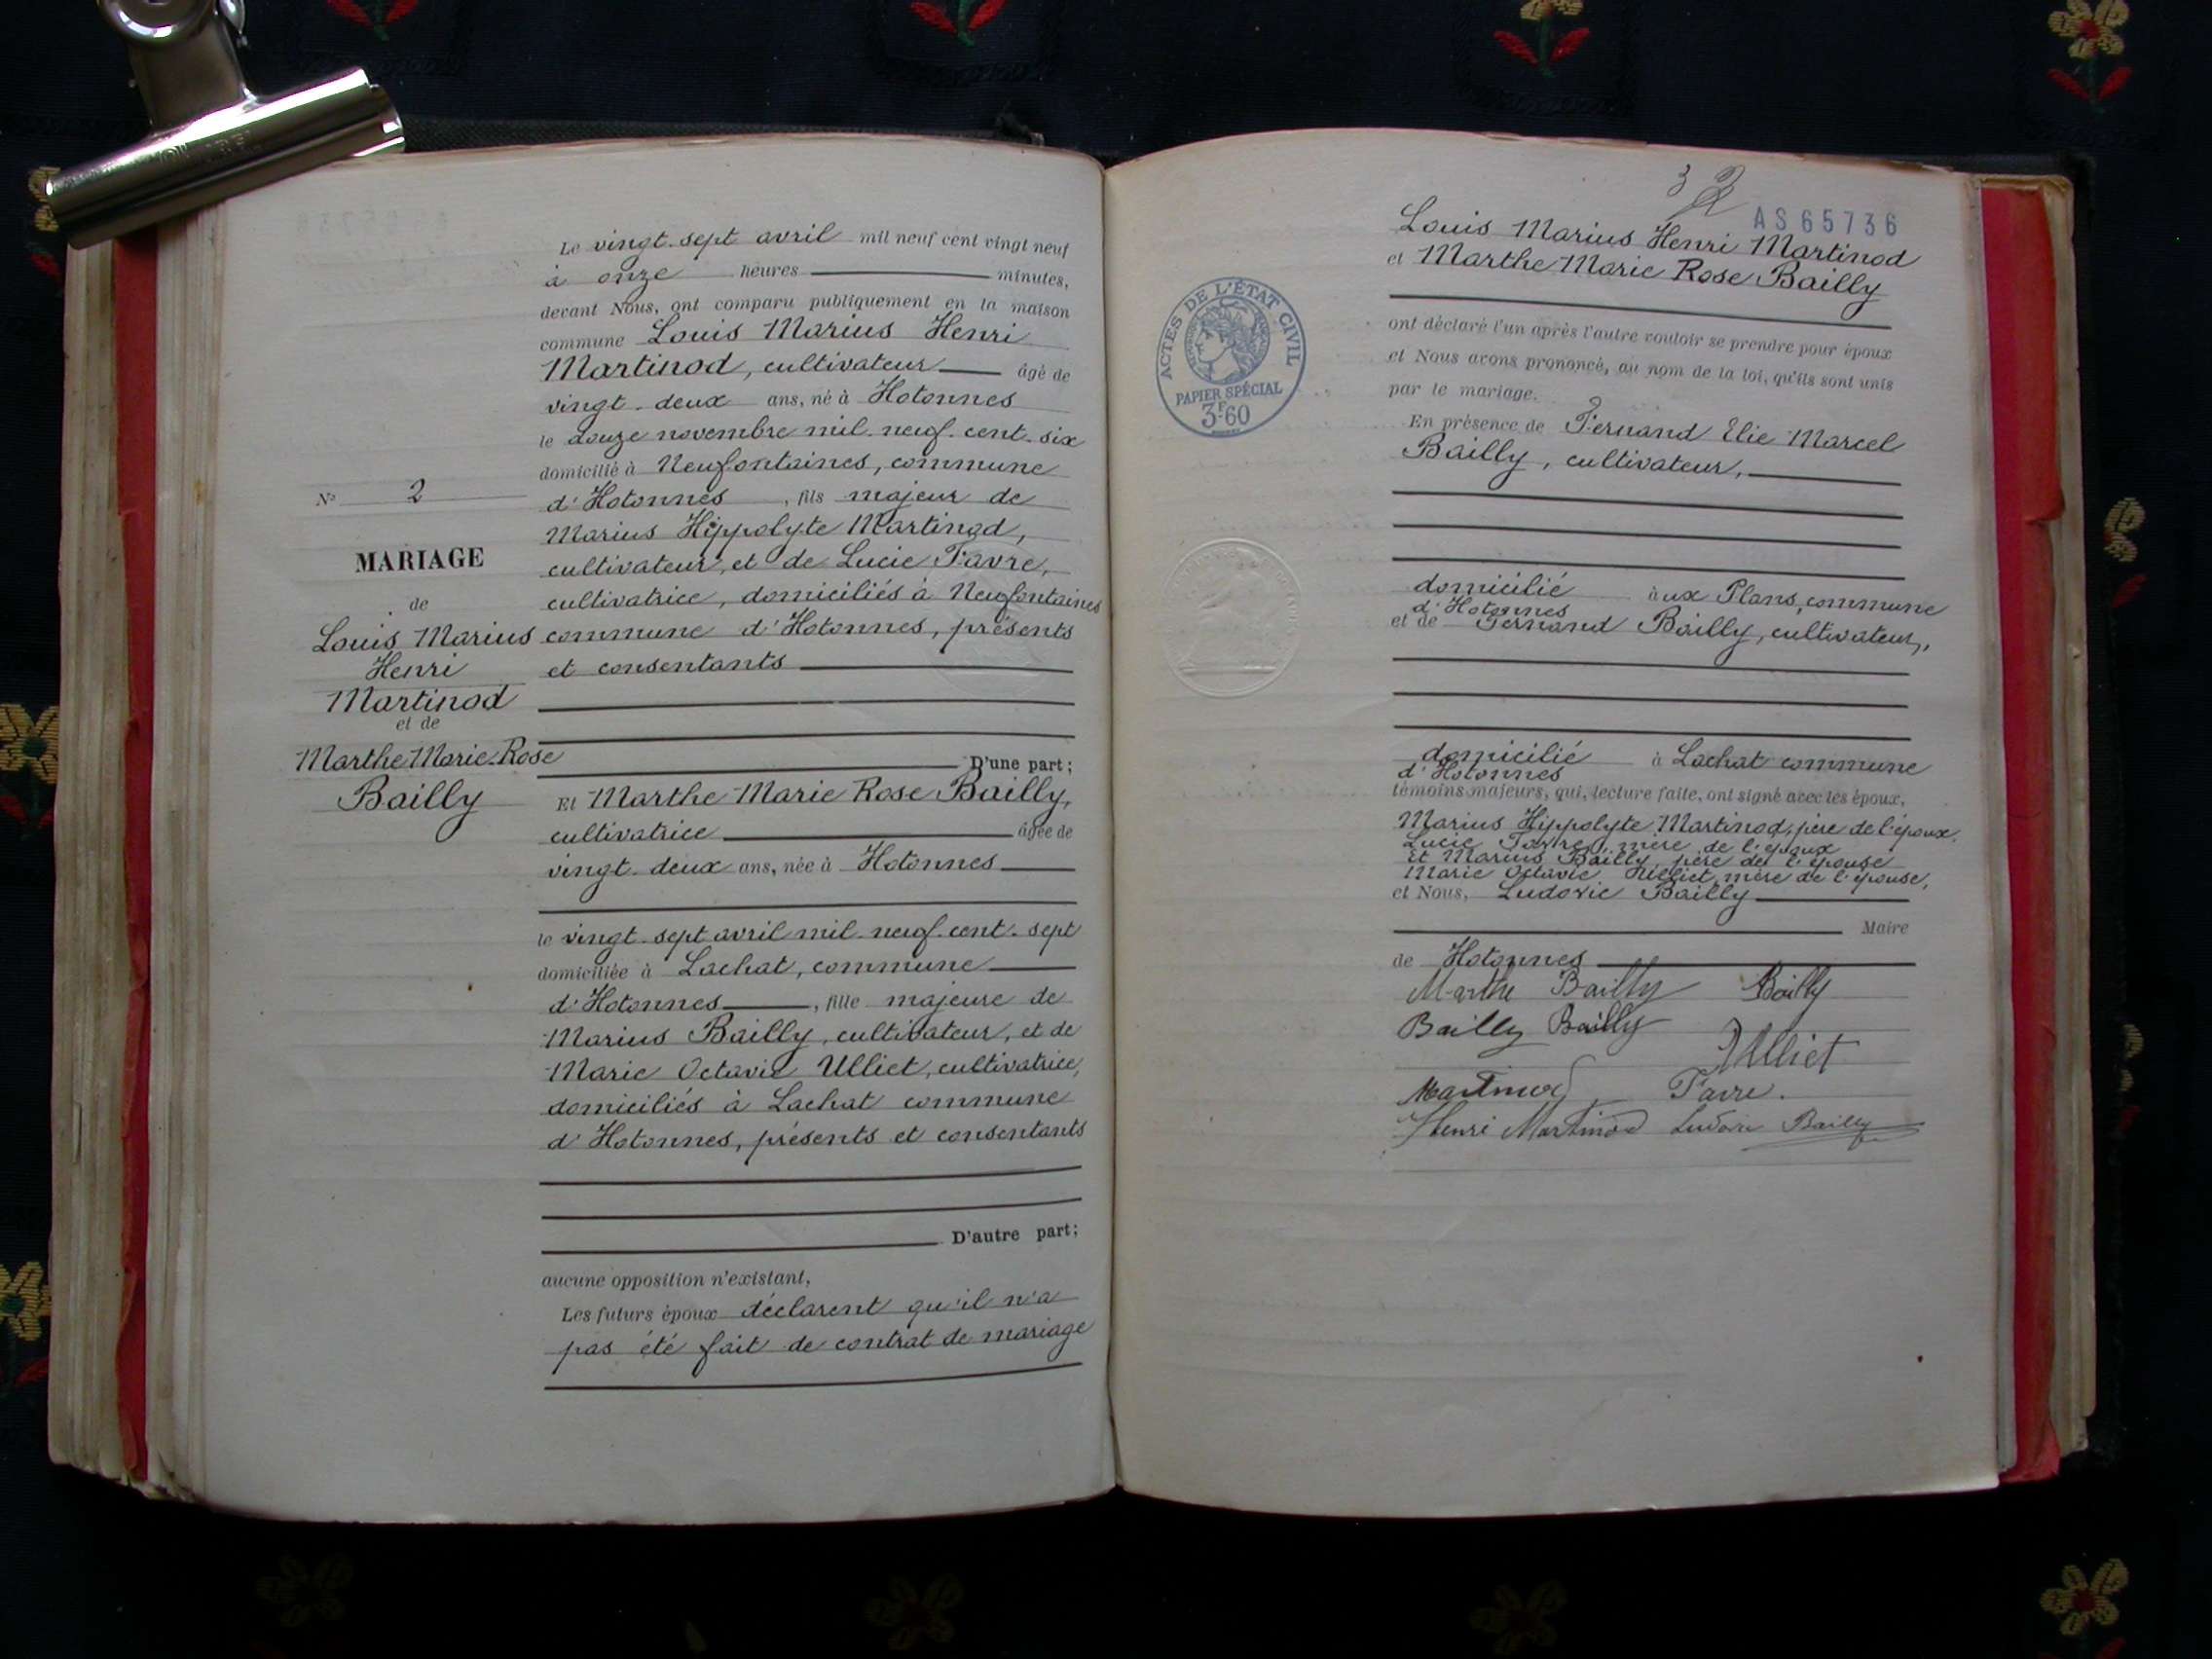 Le vingt-sept avril mil neuf cent vingt neuf
à onze heures minutes,
devant Nous, ont comparu publiquement en la maison
commune Louis Marius Henri
Martinod, cultivateur âgé de
vingt-deux ans, né à Hotonnes
le douze novembre mil-neuf-cent-six
domicilié à Neufontaines, commune
d'Hotonnes, fils majeur de
Marius Hippolyte Martinod,
cultivateur, et de Lucie Favre,
cultivatrice, domiciliés à Neufontaines
commune d'Hotonnes, présents
et consentants
D'une part;
Et Marthe Marie Rose Bailly,
cultivatrice âgée de
vingt-deux ans, née à Hotonnes
le vingt-sept avril mil-neuf-cent-sept
domiciliée à Lachat, commune
d'Hotonnes, fille majeure de
Marius Bailly, cultivateur, et de
Marie Octavie Ulliet, cultivatrice,
domiciliés à Lachat commune
d'Hotonnes, présents et consentants
D'autre part;
aucune opposition n'existant,
Les futurs époux déclarent qu'il n'a
pas été fait de contrat de mariage
N° 2
MARIAGE
de
Louis Marius
Henri
Martinod
et de
Marthe Marie-Rose
Bailly
3 2
AS 65736
Louis Marius Henri Martinod
et Marthe Marie Rose Bailly
ont déclaré l'un après l'autre vouloir se prendre pour époux
et Nous avons prononcé, au nom de la loi, qu'ils sont unis
par le mariage.
En présence de Fernand Elie Marcel
Bailly, cultivateur,
domicilié aux Plans, commune
d'Hotonnes
et de Fernand Bailly, cultivateur,
domicilié à Lachat commune
d'Hotonnes
témoins majeurs, qui, lecture faite, ont signé avec les époux,
Marius Hippolyte Martinod, père de l'époux.
Lucie Favre, mère de l'époux
Et Marius Bailly, père de l'épouse
Marie Octavie Ulliet, mère de l'épouse,
et Nous, Ludovic Bailly
Maire
de Hotonnes
Marthe Bailly Bailly
Bailly Bailly
Ulliet
Martinod Favre.
Henri Martinod Ludovic Bailly
ACTES DE L'ÉTAT CIVIL
PAPIER SPÉCIAL
3F60